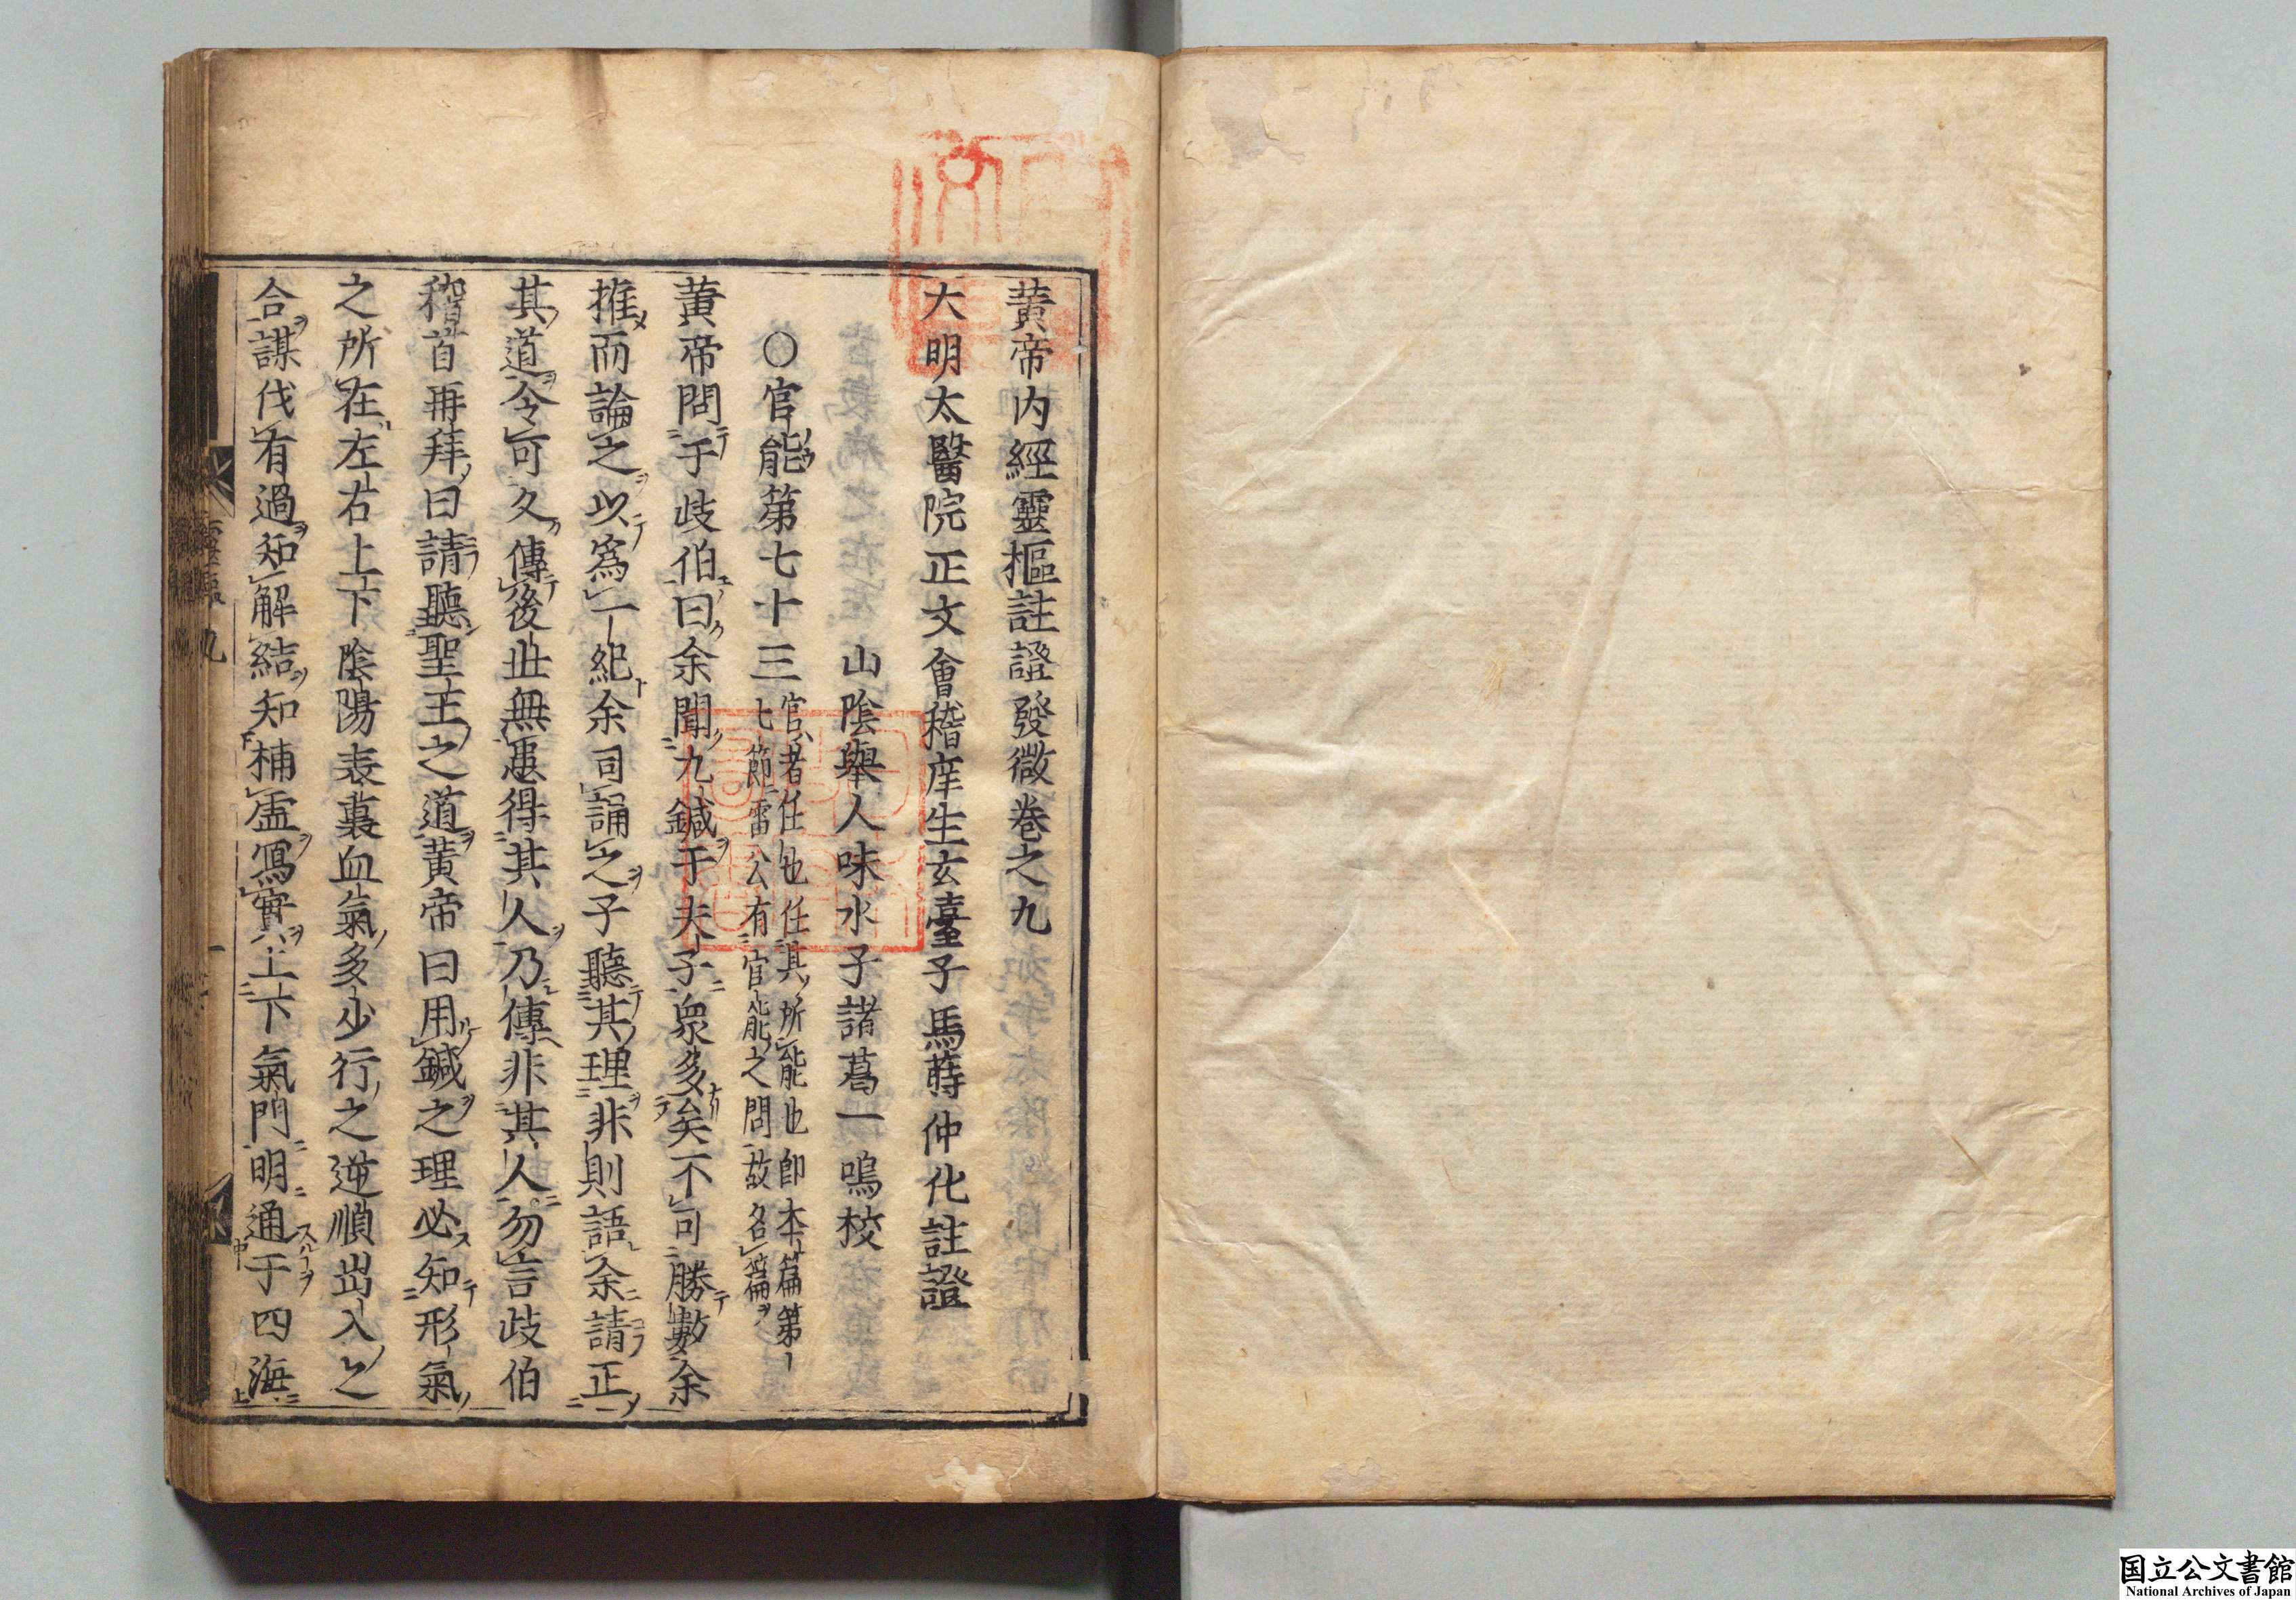 黃帝内經靈樞註證發微卷之九
大明太醫院正文會稽庠生玄臺子馬蒔仲化註證
山陰舉人味水子諸葛一鳴校
〇官能第七十三
官者任也任其所能也卽本篇第十
七節雷公有官能之問故名篇
黃帝問于歧伯曰余聞九鍼于夫子衆多矣不可勝數余
推而論之以爲一紀余司誦之子聽其理非則語余請正
其道令可久傳後世無患得其人乃傳非其人勿言歧伯
稽首再拜曰請聽聖王之道黃帝曰用鍼之理必知形氣
之所在左右上下陰陽表裏血氣多少行之逆順出入之
合謀伐有過知解結知補虛瀉實上下氣門明通于四海
靈樞九
一
国立公文書館
National Archives of Japan